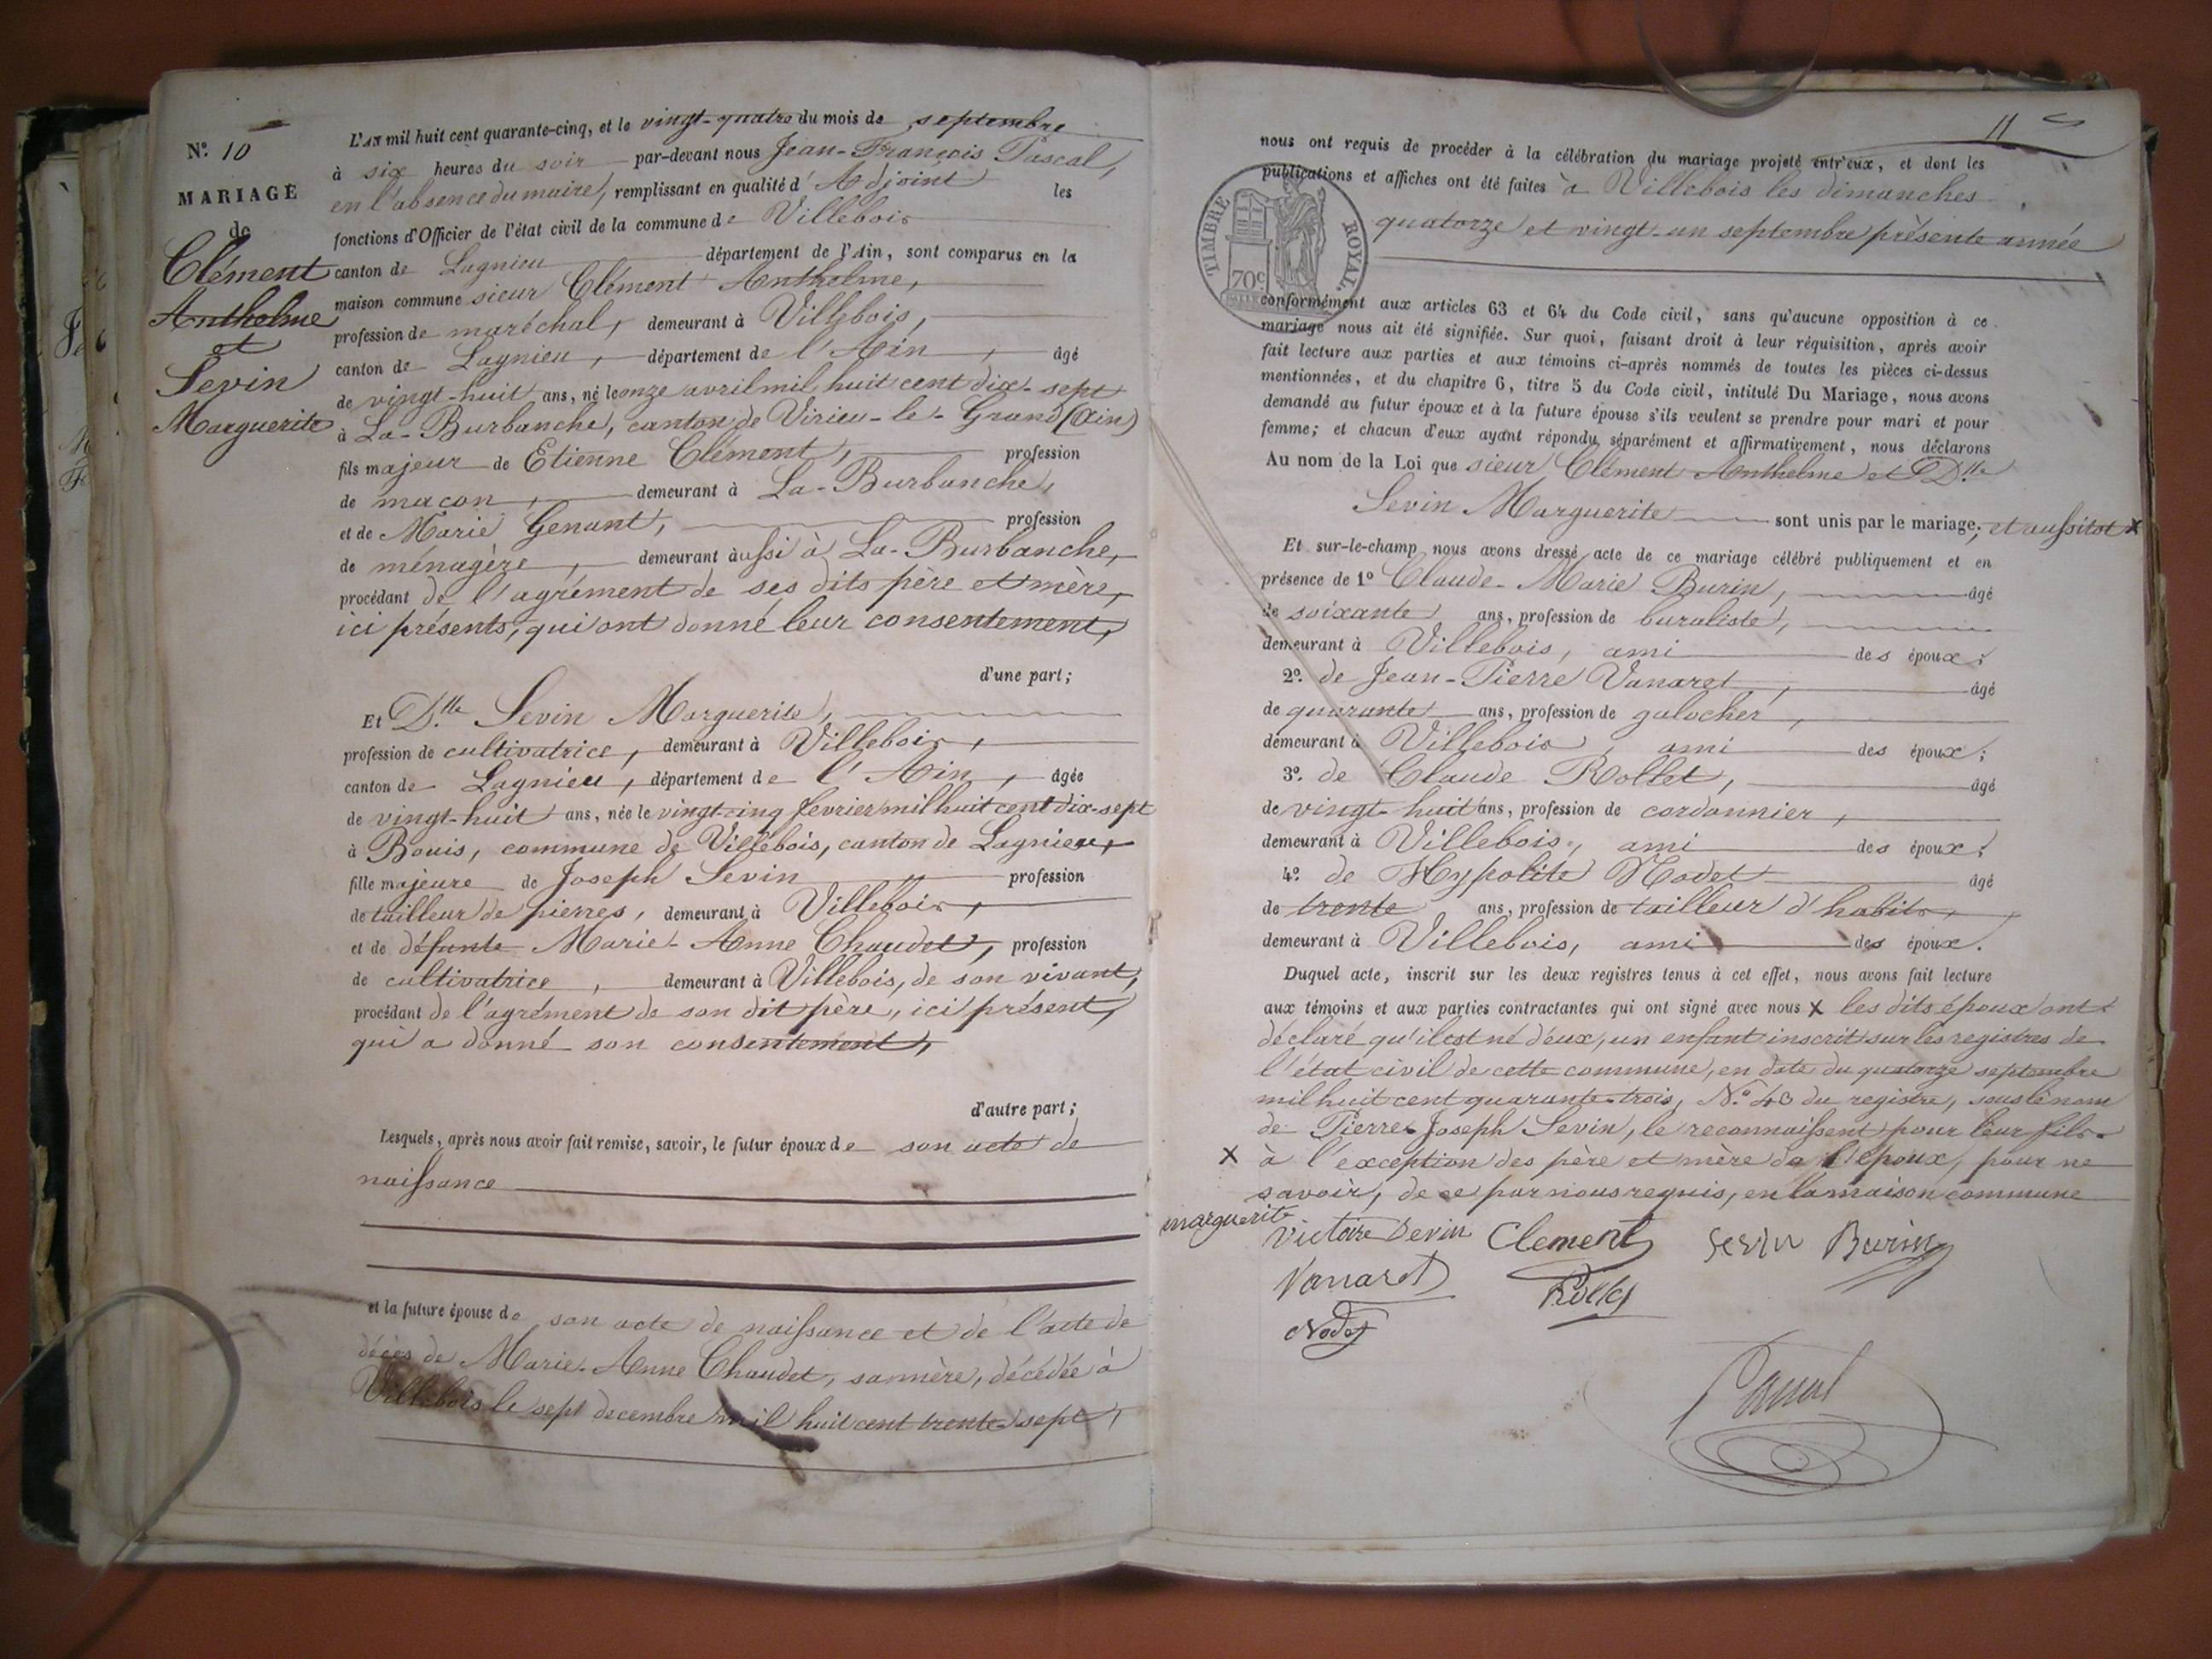 Nº. 10
MARIAGE
de
Clément
Anthelme
et
Sevin
Marguerite
L'AN mil huit cent quarante-cinq, et le vingt-quatre du mois de septembre
à six heures du soir par-devant nous Jean-François Pascal,
en l'absence du maire, remplissant en qualité d'Adjoint les
fonctions d'Officier de l'état civil de la commune de Villebois
canton de Lagnieu département de l'Ain, sont comparus en la
maison commune sieur Clément Anthelme,
profession de maréchal, demeurant à Villebois,
canton de Lagnieu, département de l'Ain, âgé
de vingt-huit ans, né le onze avril mil huit cent dix-sept
à La-Burbanche, canton de Virieu-le-Grand (Ain)
fils majeur de Etienne Clément, profession
de maçon, demeurant à La-Burbanche,
et de Marie Genant, profession
de ménagère, demeurant aussi à La-Burbanche,
procédant de l'agrément de ses dits père et mère,
ici présents, qui ont donné leur consentement,
d'une part;
Et D.lle Sevin Marguerite,
profession de cultivatrice, demeurant à Villebois,
canton de Lagnieu, département de l'Ain, âgée
de vingt-huit ans, née le vingt-cinq fevrier mil huit cent dix-sept
à Bouis, commune de Villebois, canton de Lagnieu,
fille majeure de Joseph Sevin profession
de tailleur de pierres, demeurant à Villebois,
et de défunte Marie-Anne Chaudet, profession
de cultivatrice, demeurant à Villebois, de son vivant,
procédant de l'agrément de son dit père, ici présent,
qui a donné son consentement,
d'autre part;
Lesquels, après nous avoir fait remise, savoir, le futur époux de son acte de
naissance
et la future épouse de son acte de naissance et de l'acte de
décès de Marie-Anne Chaudet, sa mère, décédée à
Villebois le sept decembre mil huit cent trente-sept,
11
nous ont requis de procéder à la célébration du mariage projeté entr'eux, et dont les
publications et affiches ont été faites à Villebois les dimanches
quatorze et vingt-un septembre présente année
TIMBRE ROYAL.
70c
conformément aux articles 63 et 64 du Code civil, sans qu'aucune opposition à ce
mariage nous ait été signifiée. Sur quoi, faisant droit à leur réquisition, après avoir
fait lecture aux parties et aux témoins ci-après nommés de toutes les pièces ci-dessus
mentionnées, et du chapitre 6, titre 5 du Code civil, intitulé Du Mariage, nous avons
demandé au futur époux et à la future épouse s'ils veulent se prendre pour mari et pour
femme; et chacun d'eux ayant répondu séparément et affirmativement, nous déclarons
Au nom de la Loi que sieur Clément Anthelme et D.lle
Sevin Marguerite sont unis par le mariage; et aussitot x
Et sur-le-champ nous avons dressé acte de ce mariage célébré publiquement et en
présence de 1º Claude-Marie Burin, âgé
de soixante ans, profession de buraliste,
demeurant à Villebois, ami des époux;
2º. de Jean-Pierre Vanaret, âgé
de quarante ans, profession de galocher,
demeurant à Villebois, ami des époux;
3º. de Claude Rollet, âgé
de vingt-huit ans, profession de cordonnier,
demeurant à Villebois, ami des époux;
4º. de Hypolite Nodet âgé
de trente ans, profession de tailleur d'habits,
demeurant à Villebois, ami des époux.
Duquel acte, inscrit sur les deux registres tenus à cet effet, nous avons fait lecture
aux témoins et aux parties contractantes qui ont signé avec nous x les dits époux ont
déclaré qu'il est né d'eux, un enfant inscrit sur les registres de
l'état civil de cette commune, en date du quatorze septembre
mil huit cent quarante-trois, N.º 43 du registre, sous le nom
de Pierre-Joseph Sevin, le reconnaissent pour leur fils.
x à l'exception des père et mère de l'époux, pour ne
savoir, de ce par nous requis, en la maison commune
marguerite
victoire Sevin Clement sevin Burin
Vanaret Rollet
Nodet
Pascal